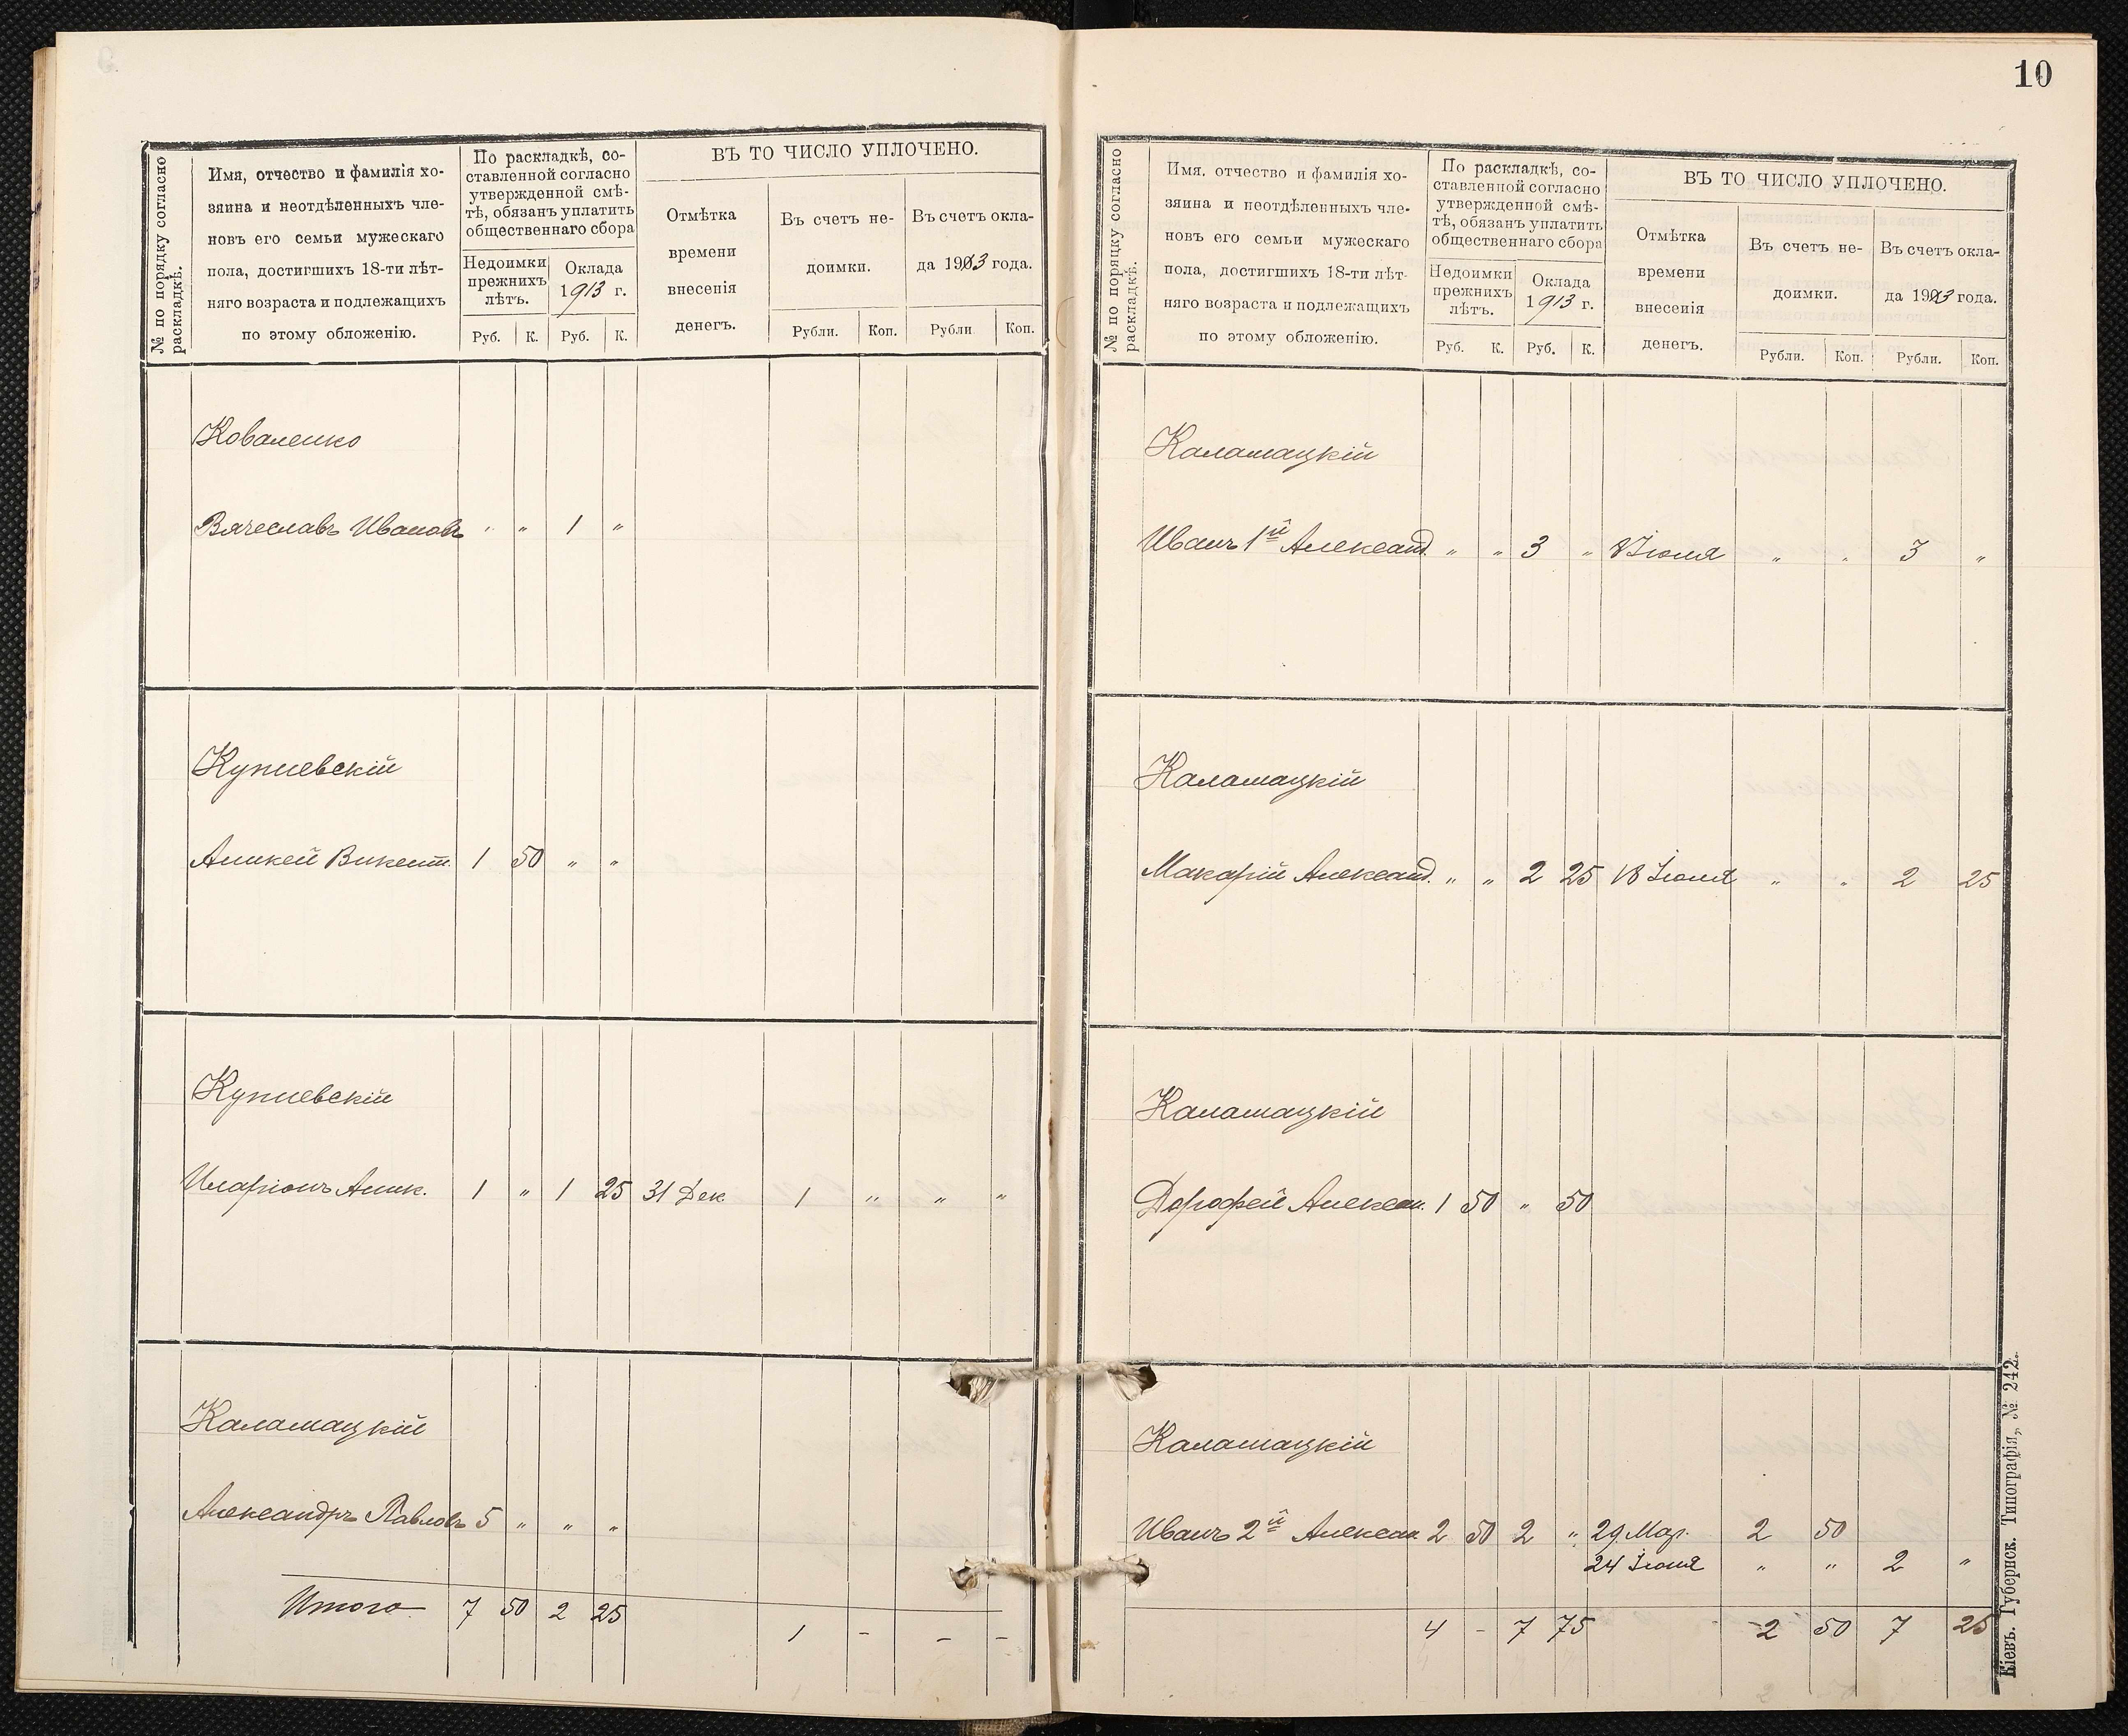 № по порядку согласно
раскладкѣ.
Имя, отчество и фамилія хо-
зяина и неотдѣленныхъ чле-
новъ его семьи мужескаго
пола, достигшихъ 18-ти лѣт-
няго возраста и подлежащихъ
по этому обложенію.
По раскладкѣ, со-
ставленной согласно
утвержденной смѣ-
тѣ, обязанъ уплатить
общественнаго сбора
Недоимки
прежнихъ
лѣтъ.
Оклада
1913 г.
Руб. К. Руб. К.
ВЪ ТО ЧИСЛО УПЛОЧЕНО.
Отмѣтка
времени
внесенія
денегъ.
Въ счетъ не-
доимки.
Въ счетъ окла-
да 1913 года.
Рубли. Коп. Рубли Коп.
Коваленко
Вячеславъ Ивановъ " " 1 "
Купчевскій
Аникей Викент. 1 50 " "
Купчевскій
Иларіонъ Аник. 1 " 1 25 31 Дек 1 " " "
Каламацкій
Александръ Павловъ 5 " " "
Итого 7 50 2 25 1 - - -
10
№ по поряцку согласно
раскладкѣ.
Имя. отчество и фамилія хо-
зяина и неотдѣленныхъ чле-
новъ его семьи мужескаго
пола, достигшихъ 18-ти лѣт-
няго возраста и подлежащихъ
по этому обложенію.
По раскладкѣ, со-
ставленной согласно
утвержденной смѣ-
тѣ, обязанъ уплатить
общественнаго сбора
Недоимки
прежнихъ
лѣтъ.
Оклада
1913 г.
Руб. К. Руб. К.
ВЪ ТО ЧИСЛО УПЛОЧЕНО.
Отмѣтка
времени
внесенія
денегъ.
Въ счетъ не-
доимки.
Въ счетъ окла-
да 1913 года.
Рубли. Коп. Рубли. Коп.
Каламацкій
Иванъ 1й Александ. " " 3 " 8 Іюля " " 3 "
Каламацкій
Макарій Александ. " " 2 25 18 Іюля " " 2 25
Каламацкій
Дорофей Алексан. 1 50 " 50
Каламацкій
Иванъ 2й Алексан. 2 50 2 " 29 Мар. 2 50
24 Іюля " " 2 "
4 - 7 75 2 50 7 25
Кіевъ. Губернск. Типографія„ № 242.